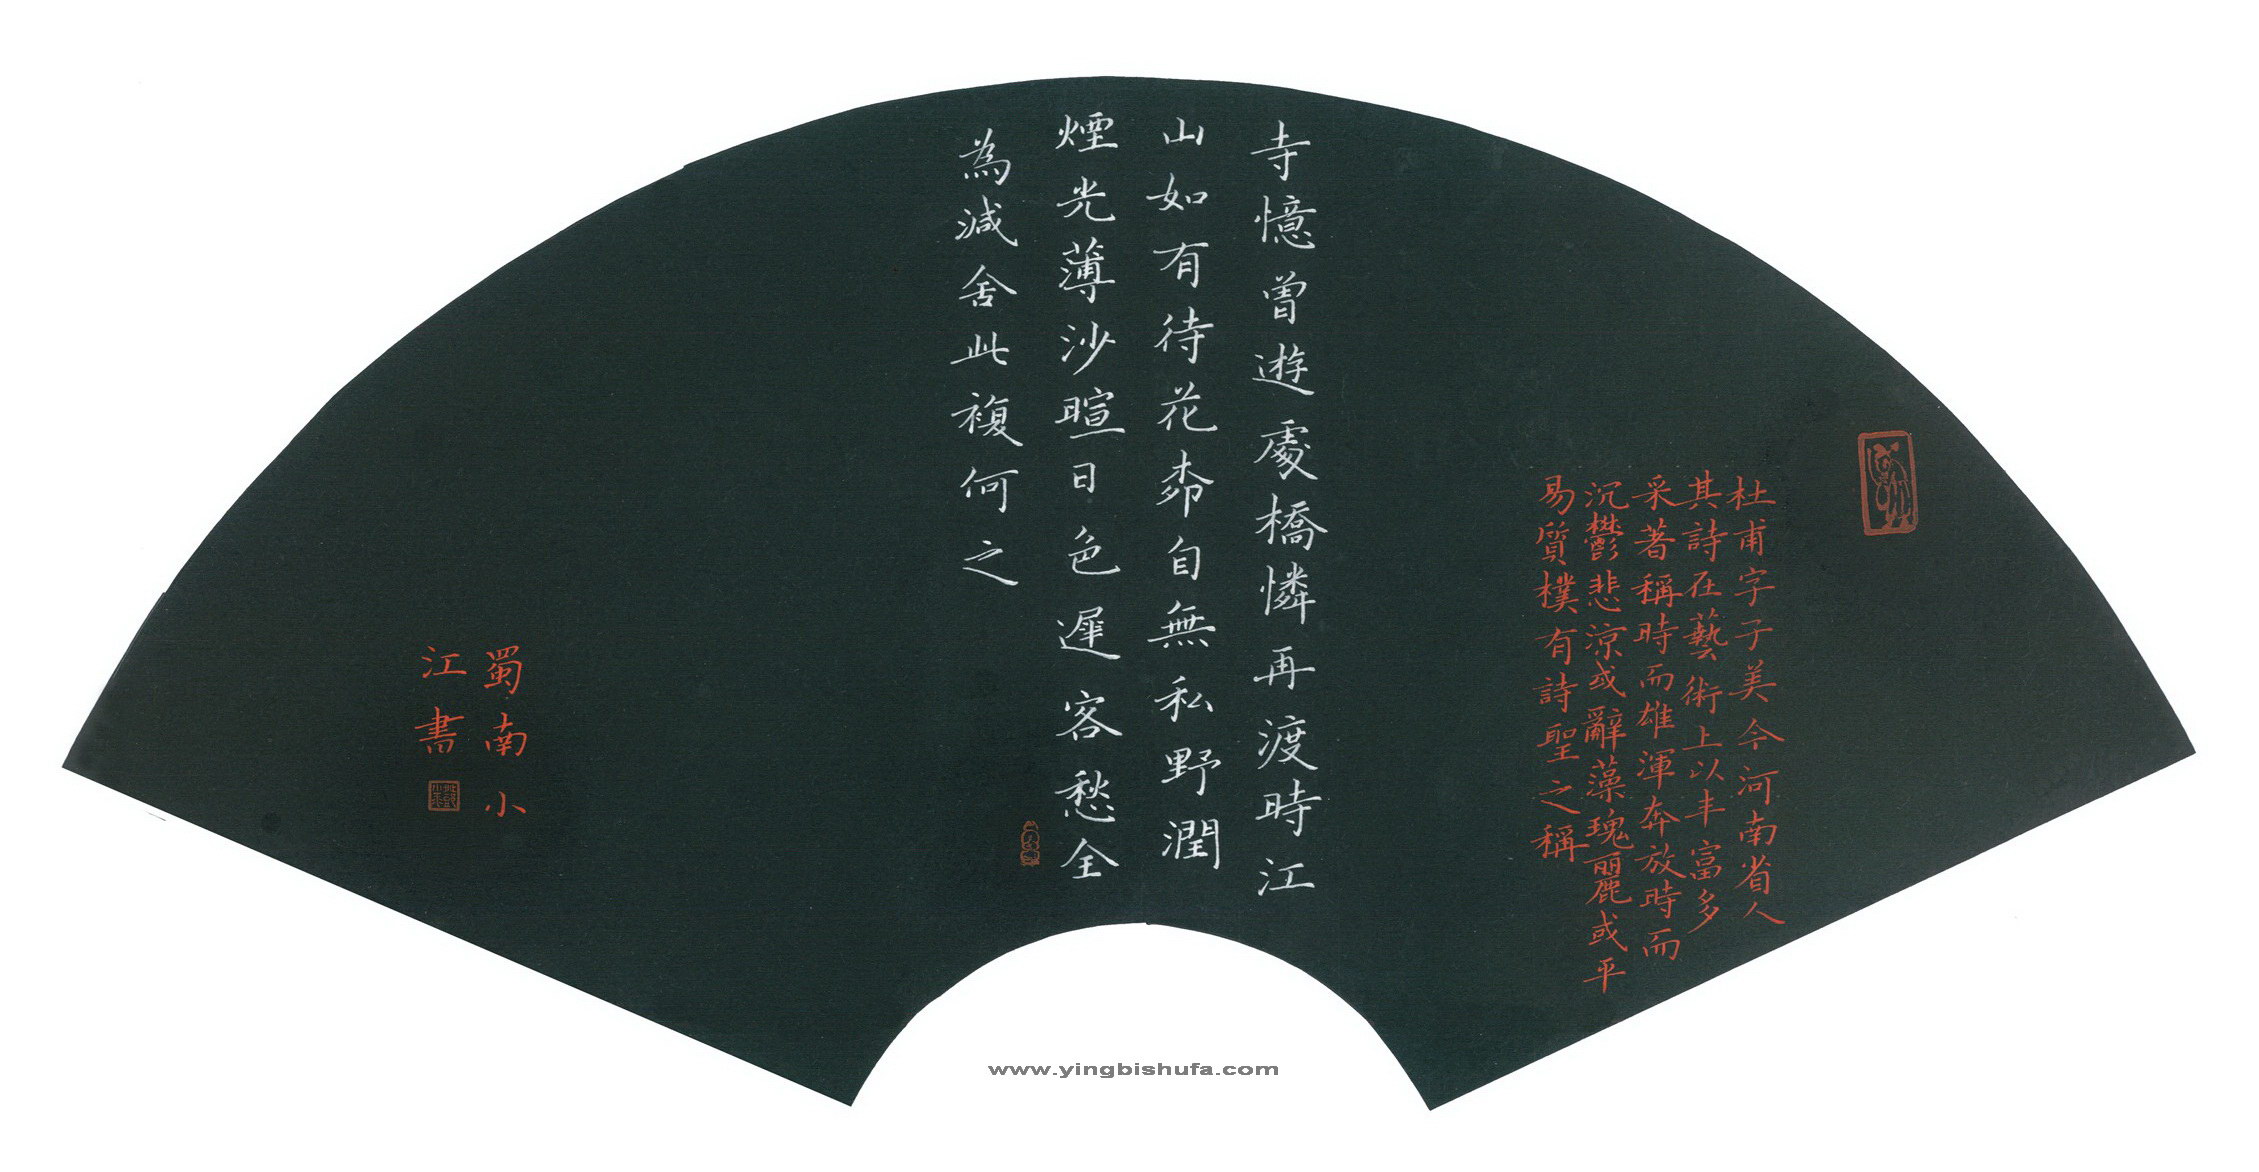 杜甫字子美今河南省人
其詩在藝術上以丰富多
采著稱時而雄渾奔放時而
沉鬱悲涼或辭藻瑰麗或平
易質樸有詩聖之稱
寺憶曾遊處橋憐再渡時江
山如有待花柳自無私野潤
煙光薄沙暄日色遲客愁全
為減舍此複何之
蜀南小
江書
www.yingbishufa.com